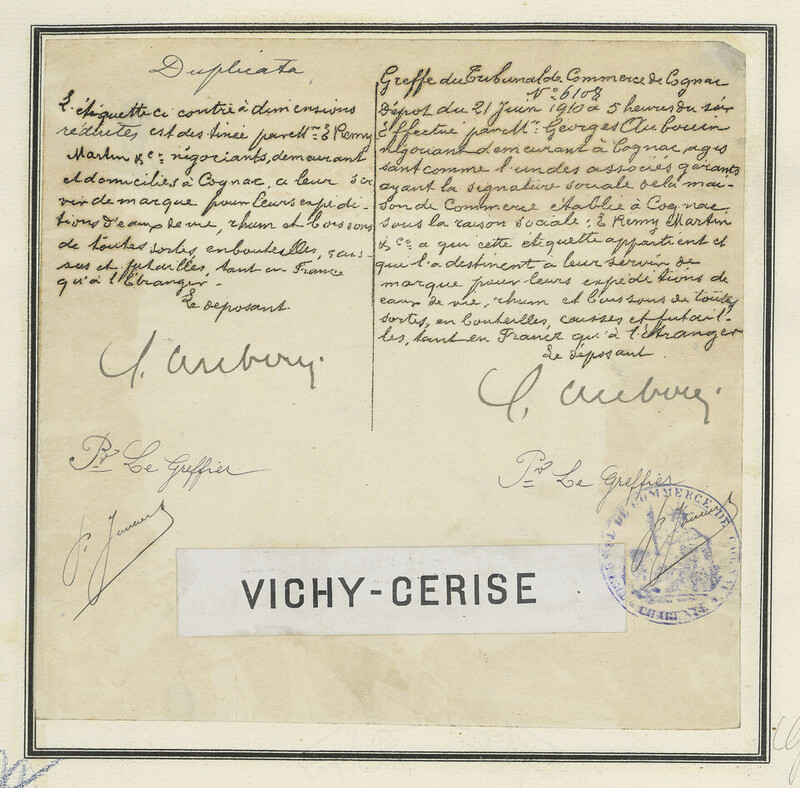 Duplicata
L'étiquette ci contre à dimensions
réduites est destinée par Mrs E Remy
Martin & Cie négociants, demeurant
et domiciliés à Cognac, a leur ser
vir de marque pour leurs expédi-
tions d'eaux de vie, rhum et boissons
de toutes sortes, en bouteilles, cais-
ses et futailles, tant en France
qu'à l'Étranger.
Le déposant.
Pr Le Greffier
Greffe du Tribunal de Commerce de Cognac
No 6108
Dépot du 21 Juin 1910 à 5 heures du soir
Effectué par Mr Georges Auboin
négociant demeurant à Cognac, agis
sant comme l'un des associés gérants
ayant la signature sociale de la mai-
son de Commerce établie à Cognac
sous la raison sociale; E Remy Martin
& Co a qui cette étiquette appartient et
qui l'a destinent à leur servir de
marque pour leurs expéditions de
eaux de vie, rhum et boissons de toutes
sortes, en bouteilles, caisses et futail-
les, tant en France qu'à l'étranger
Le déposant
Pr Le Greffier
TRIBUNAL DE COMMERCE DE COGNAC
CHARENTE
VICHY-CERISE